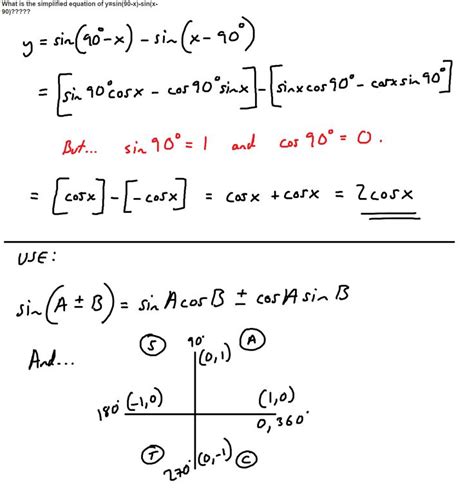 What is the simplified equation of y=sin(90-x)-sin(x-
90)?????
y = sin(90°-x) - sin(x-90°)
= [sin 90°cosx - cos 90°sinx] - [sinxcos90° - cosxsin90°]
But... sin 90° = 1 and cos 90° = 0.
= [cosx] - [-cosx] = cosx + cosx = 2cosx
USE:
sin(A ± B) = sin A cos B ± cos A sin B
And...
S 90° A
(0,1)
180° (-1,0) (1,0)
0, 360°
T (0,-1) C
270°